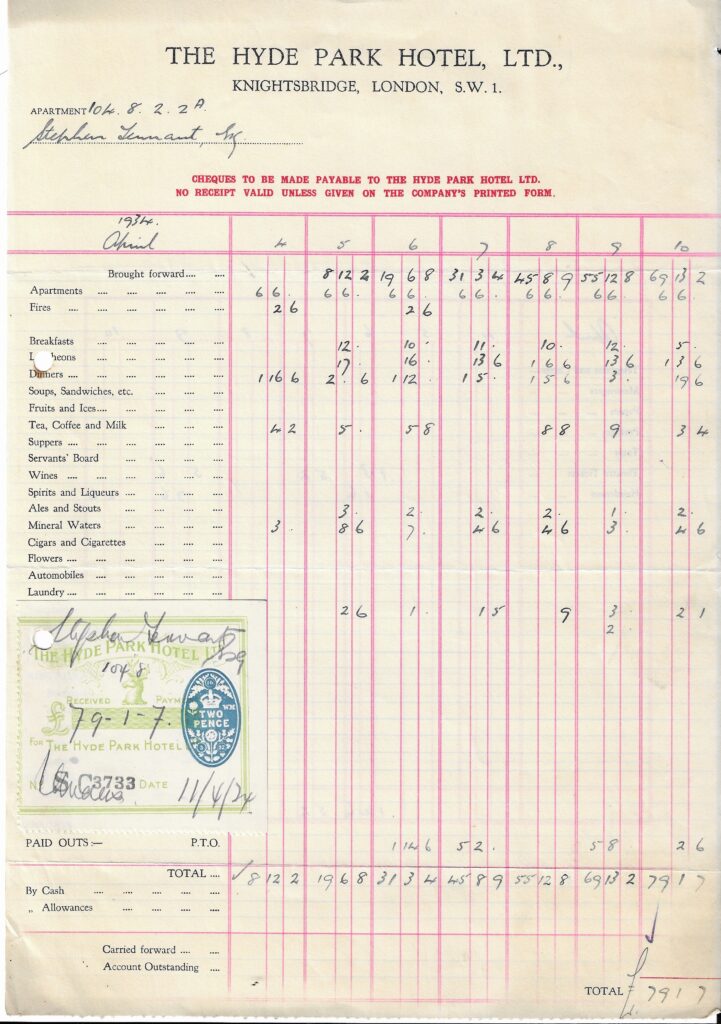 THE HYDE PARK HOTEL, LTD.,
KNIGHTSBRIDGE, LONDON, S.W. 1.
APARTMENT 104. 8. 2. 2A.
Stephen Tennant, Esq
CHEQUES TO BE MADE PAYABLE TO THE HYDE PARK HOTEL LTD.
NO RECEIPT VALID UNLESS GIVEN ON THE COMPANY'S PRINTED FORM.
1934.
April 4 5 6 7 8 9 10
Brought forward.... .... 8 12 2 19 6 8 31 3 4 45 8 9 55 12 8 69 13 2
Apartments .... .... .... .... 6 6 . 6 6 . 6 6 . 6 6 . 6 6 . 6 6 . 6 6 .
Fires .... .... .... .... .... 2 6 2 6
Breakfasts .... .... .... .... 12 . 10 . 11 . 10 . 12 . 5 .
L ncheons .... .... .... .... 17 . 16 . 13 6 1 6 6 13 6 1 3 6
Dinners .... .... .... .... .... 1 16 6 2 . 6 1 12 . 1 5 . 15 6 3 . 19 6
Soups, Sandwiches, etc. .... ....
Fruits and Ices.... .... .... ....
Tea, Coffee and Milk .... .... 4 2 5 . 5 8 8 8 9 3 4
Suppers .... .... .... .... ....
Servants' Board .... .... ....
Wines .... .... .... .... ....
Spirits and Liqueurs .... .... ....
Ales and Stouts .... .... .... 3 . 2 . 2 . 2 . 1 . 2 .
Mineral Waters .... .... .... 3 . 8 6 7 . 4 6 4 6 3 . 4 6
Cigars and Cigarettes .... ....
Flowers .... .... .... .... ....
Automobiles .... .... .... ....
Laundry.... .... .... .... ....
2 6 1 . 1 5 9 3 . 2 1
2 .
Stephen Tennant Esq
THE HYDE PARK HOTEL L
104 8
RECEIVED PAYM
£ 79-1-7.
TWO
PENCE
FOR THE HYDE PARK HOTEL
N S C3733 DATE 11/4/34
PAID OUTS :— P.T.O. 1 14 6 5 2 . 5 8 2 6
TOTAL .... 8 12 2 19 6 8 31 3 4 45 8 9 55 12 8 69 13 2 79 1 7
By Cash .... .... .... ....
„ Allowances .... .... ....
Carried forward .... ....
Account Outstanding ....
TOTAL £ 79 1 7